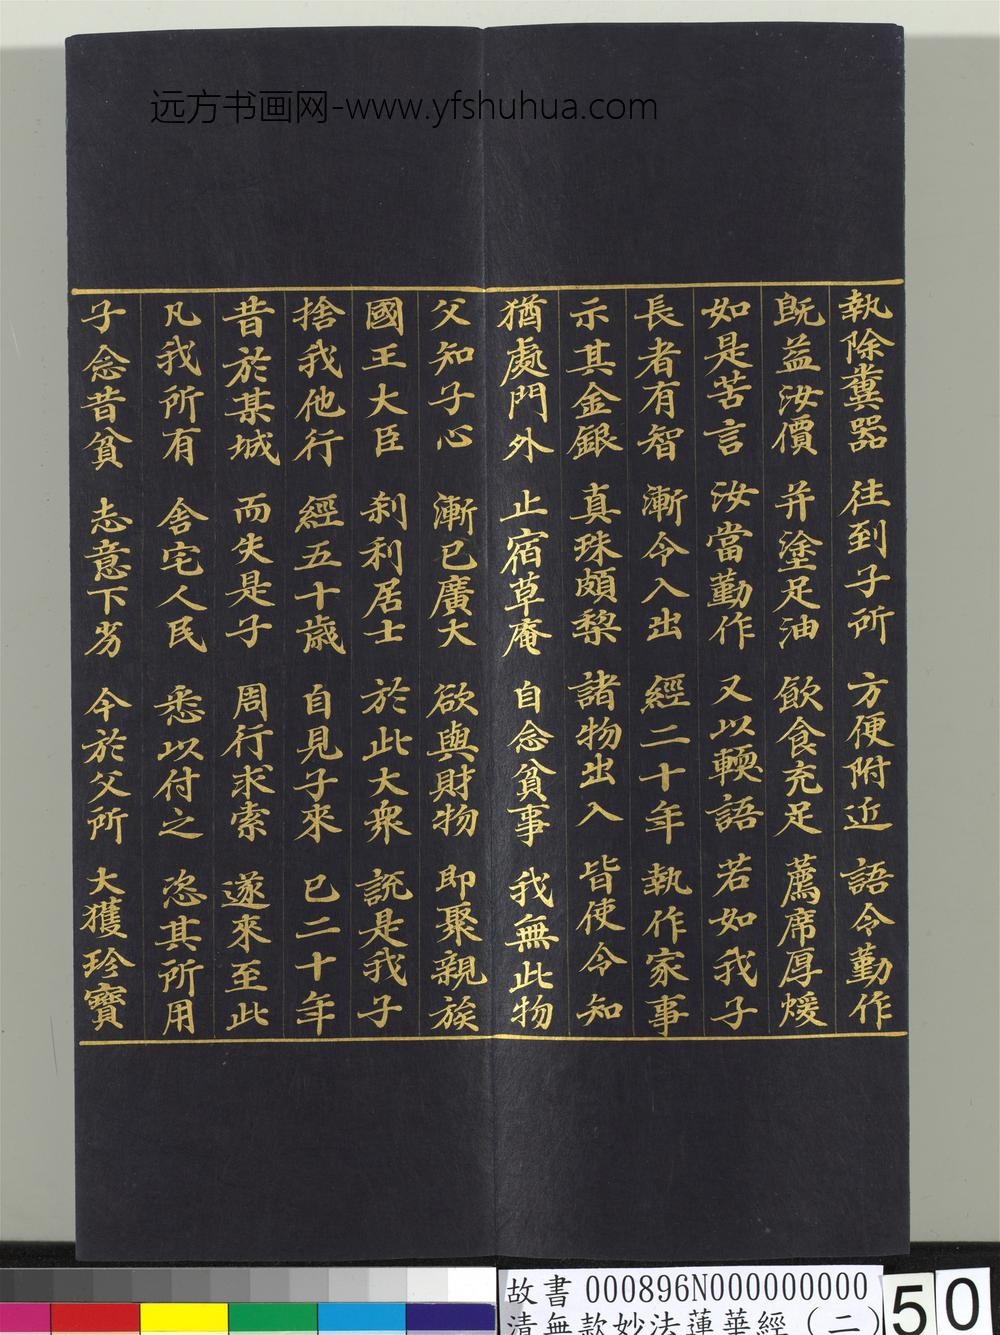 远方书画网-www.yfshuhua.com
執除糞器 往到子所 方便附近 語令勤作
既益汝價 并塗足油 飲食充足 薦席厚煖
如是苦言 汝當勤作 又以輭語 若如我子
長者有智 漸令入出 經二十年 執作家事
示其金銀 真珠頗棃 諸物出入 皆使令知
猶處門外 止宿草庵 自念貧事 我無此物
父知子心 漸已廣大 欲與財物 即聚親族
國王大臣 刹利居士 於此大衆 説是我子
捨我他行 經五十歲 自見子來 已二十年
昔於某城 而失是子 周行求索 遂來至此
凡我所有 舍宅人民 悉以付之 恣其所用
子念昔貧 志意下劣 今於父所 大獲珍寶
故書 000896N000000000
清無款妙法蓮華經（二）
50